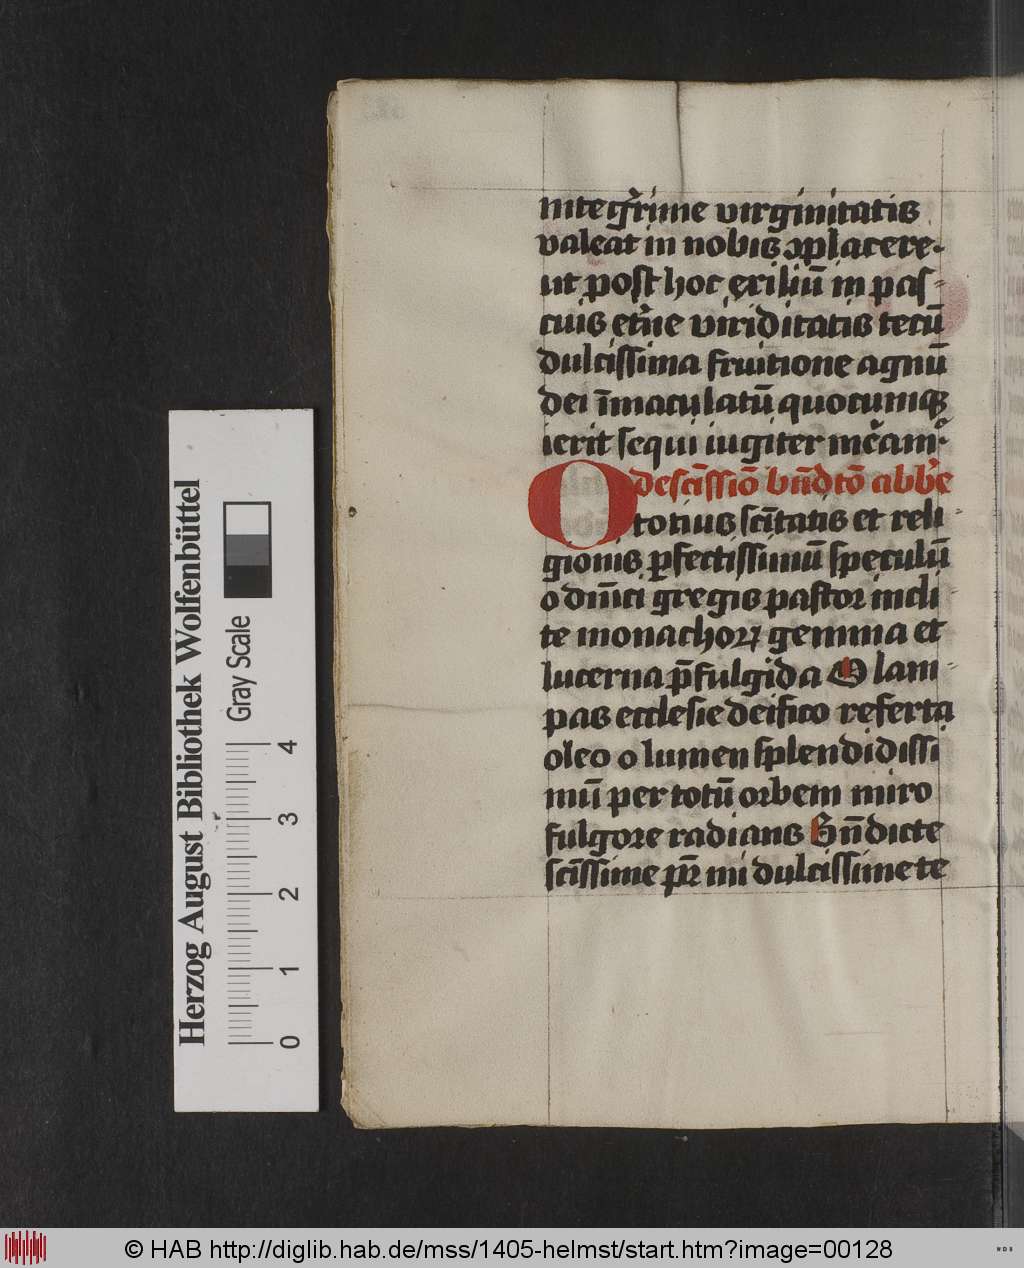 integr̃rime virginitatis
valeat in nobis ↄplacere·
ut post hoc exiliū in pas-
cuis et̾ne viriditatis tecū
dulcissima fruitione agnū
dei īmaculatū quocumqȝ
ierit sequi iugiter mēam᷒·
de scīssiō bn̄dc̄o abb̾e
O totius scītatis et reli-
gionis ꝑfectissimū speculū
o dn̄ici gregis pastor incli
te monachoꝝ gemma et
lucerna p̄fulgida O lam-
pas ecclesie deifico referta
oleo o lumen splendidissi
mū per totū orbem miro
fulgore radians Bn̄dicte
scīssime pr̄ mi dulcissime te
Herzog August Bibliothek Wolfenbüttel
Gray Scale
0 1 2 3 4
© HAB http://diglib.hab.de/mss/1405-helmst/start.htm?image=00128